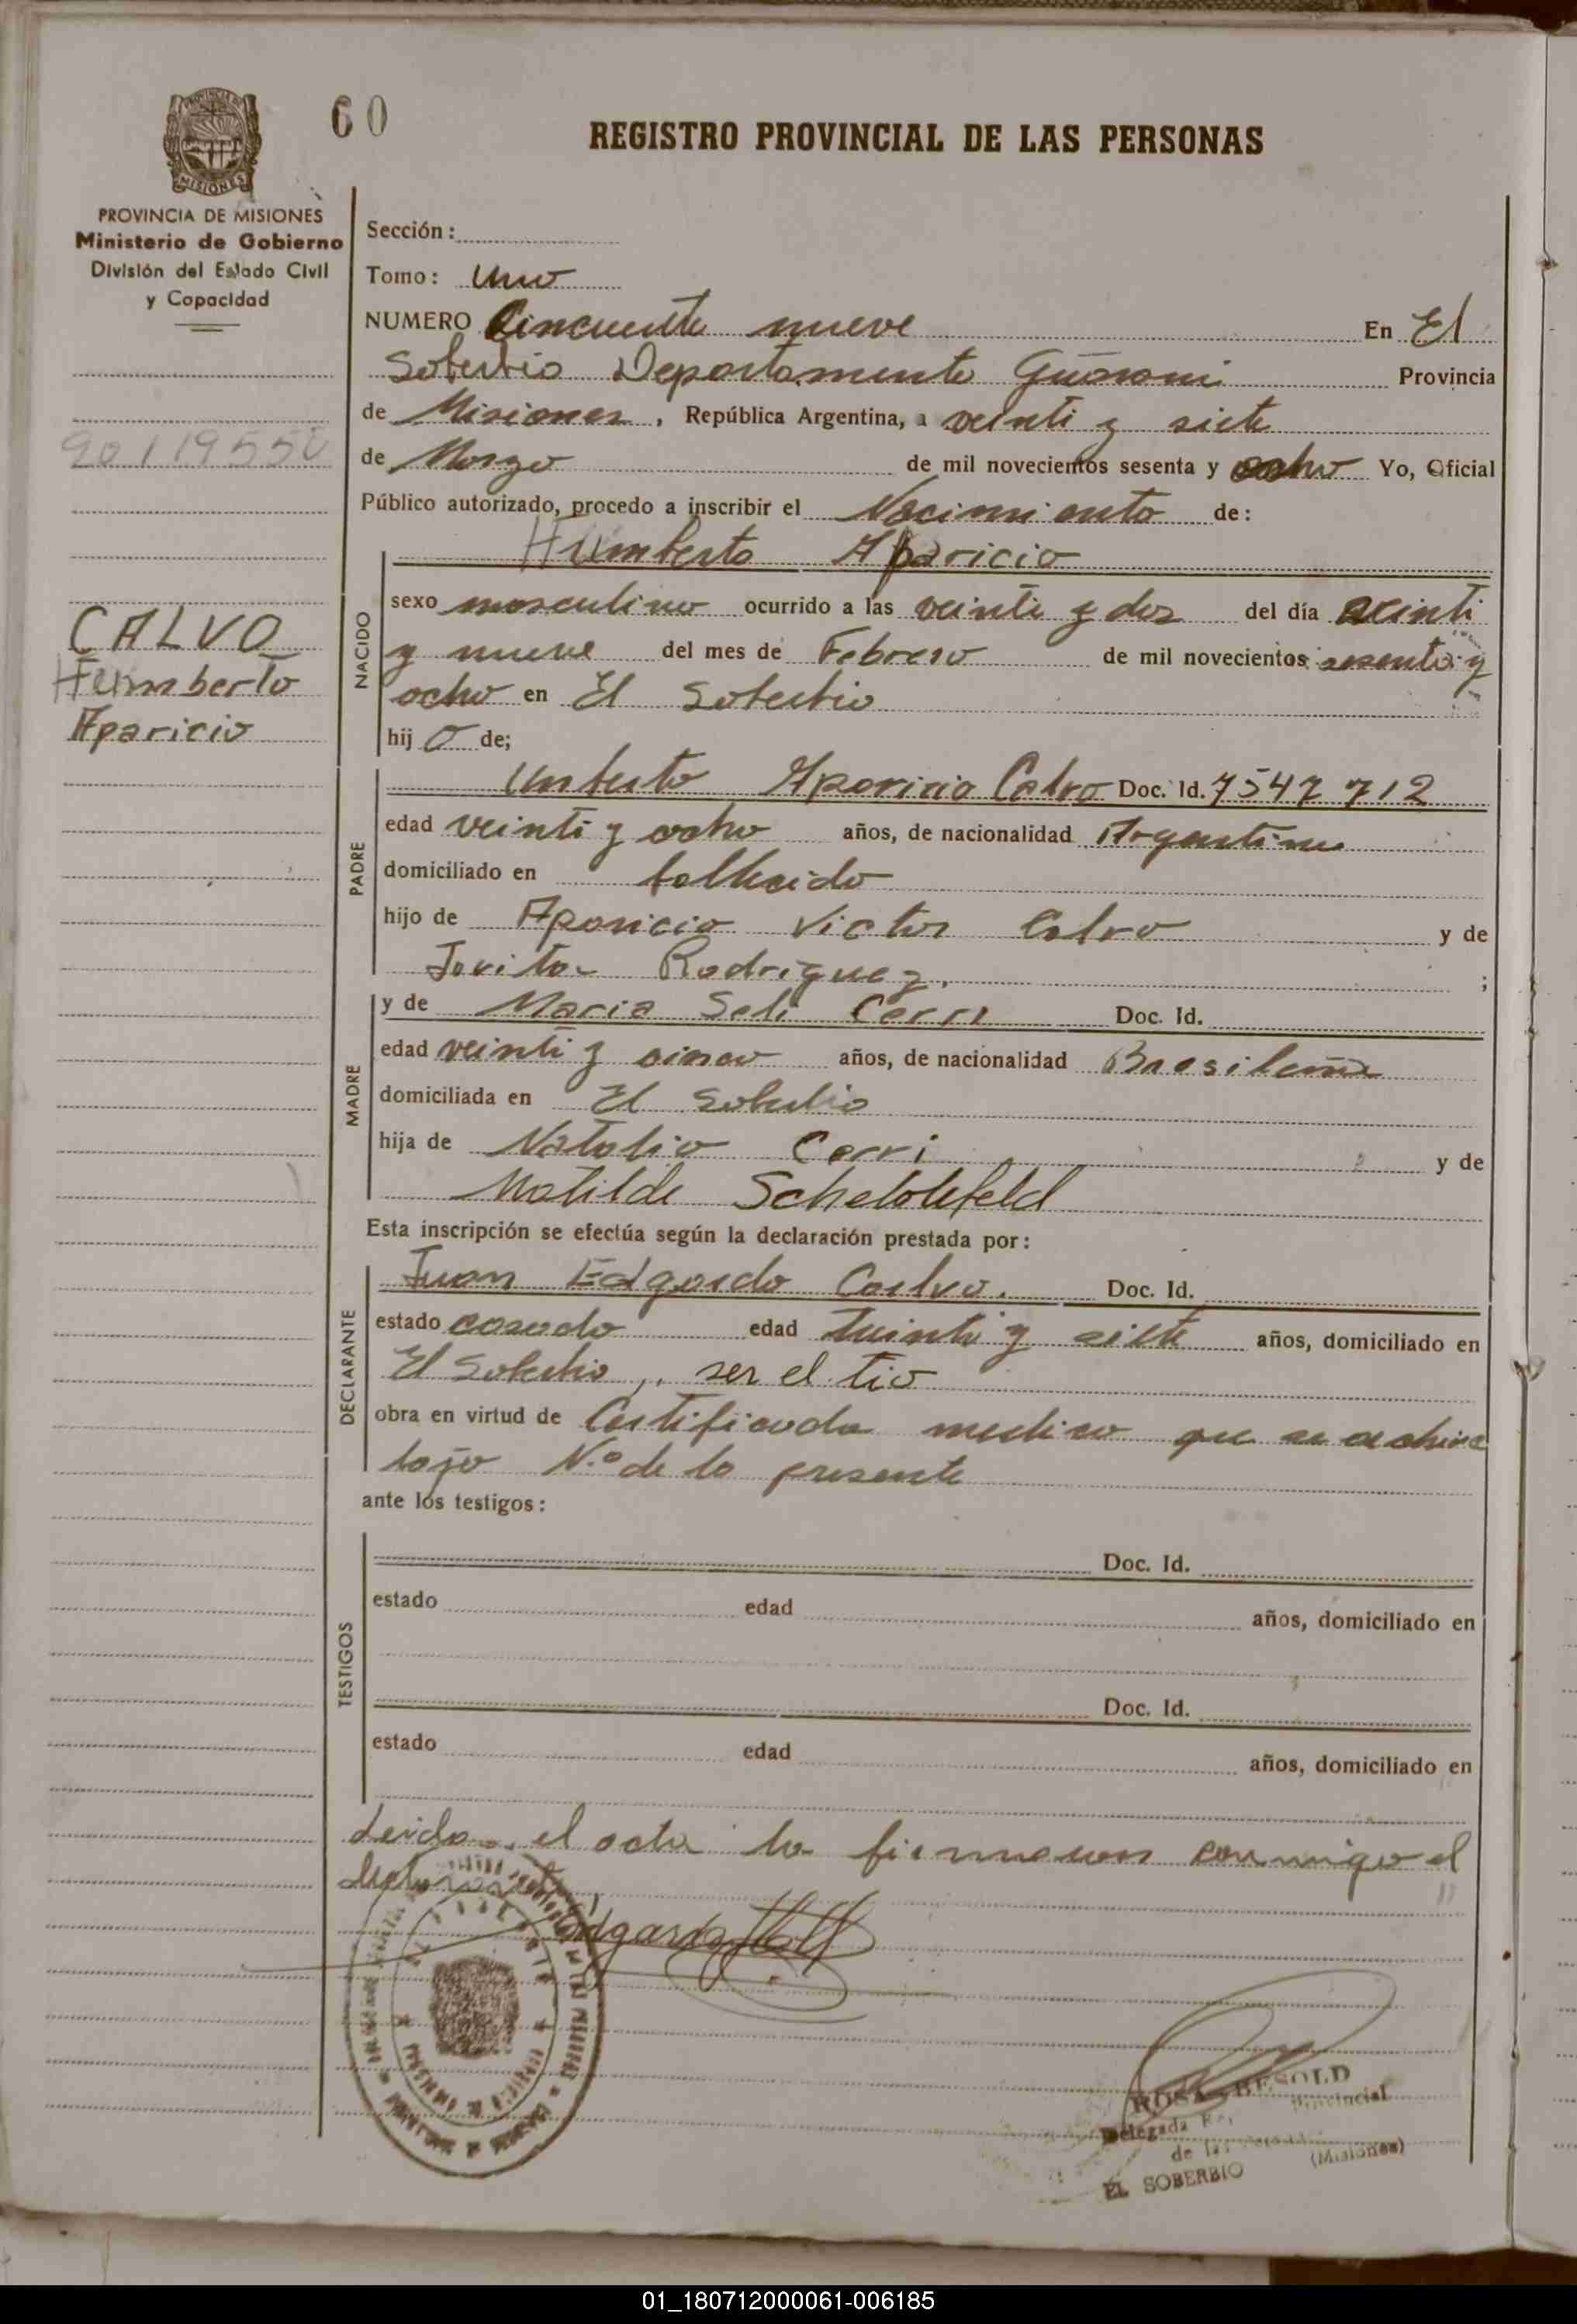 60
REGISTRO PROVINCIAL DE LAS PERSONAS
PROVINCIA DE MISIONES
Ministerio de Gobierno
División del Estado Civil
y Capacidad
CALVO
Humberto
Aparicio
Sección:
Tomo: Uno
NUMERO Cincuenta nueve En El
Soberbio Departamento Guarani Provincia
de Misiones, República Argentina, a veinti y siete
de Marzo de mil novecientos sesenta y ocho Yo, Oficial
Público autorizado, procedo a inscribir el Nacimiento de:
Humberto Aparicio
NACIDO
sexo masculino ocurrido a las veinti y dos del día veinti
y nueve del mes de Febrero de mil novecientos sesenta y
ocho en El Soberbio
hij o de;
PADRE
Umberto Aparicio Calvo Doc. Id. 7547 712
edad veinti y ocho años, de nacionalidad Argentino
domiciliado en fallecido
hijo de Aparicio Victor Calvo y de
Jovita Rodriguez. ;
MADRE
y de Maria Seli Cerri Doc. Id.
edad veinti y cinco años, de nacionalidad Brasileña
domiciliada en El Soberbio
hija de Natalio Cerri y de
Matilde
Esta inscripción se efectúa según la declaración prestada por:
DECLARANTE
Juan Edgardo Calvo. Doc. Id.
estado casado edad y siete años, domiciliado en
El Soberbio, ser el tio
obra en virtud de Certificado medico que se archiva
bajo N.º de la presente
ante los testigos:
TESTIGOS
Doc. Id.
estado edad años, domiciliado en
Doc. Id.
estado edad años, domiciliado en
Leida el acta la firman conmigo el
declarante
ROSA BESOLD
Delegada Provincial
de las
EL SOBERBIO (Misiones)
01_180712000061-006185